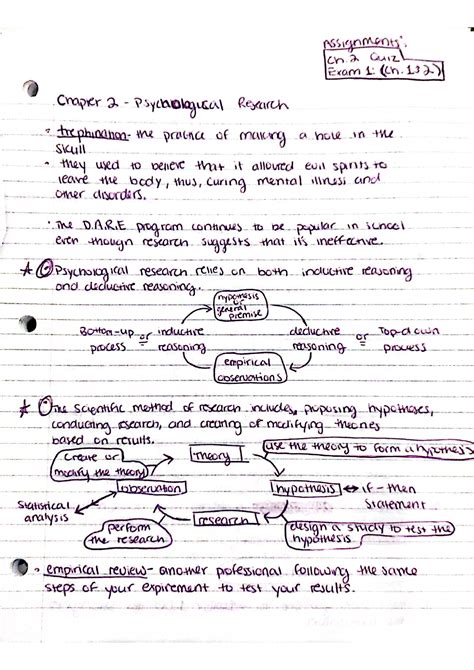 Assignments:
Ch. 2 Quiz
Exam 1: (Ch. 1 & 2)
Chapter 2 - Psychological Research
• trephination - the practice of making a hole in the
skull
• they used to believe that it allowed evil spirits to
leave the body, thus, curing mental illness and
other disorders.
• The D.A.R.E program continues to be popular in school
even though research suggests that it's ineffective.
Psychological research relies on both inductive reasoning
and deductive reasoning.
hypothesis
or
general
premise
Bottom-up or inductive deductive or Top-down
process reasoning reasoning process
empirical
observations
The scientific method of research includes, proposing hypotheses,
conducting research, and creating of modifying theories
based on results.
create or theory use the theory to form a hypothesis
modify the theory
observation hypothesis ↔ if - then
statistical statement
analysis
research
perform design a study to test the
the research hypothesis
• empirical review - another professional following the same
steps of your expirement to test your results.